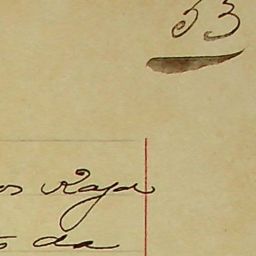 53
os Raja
da